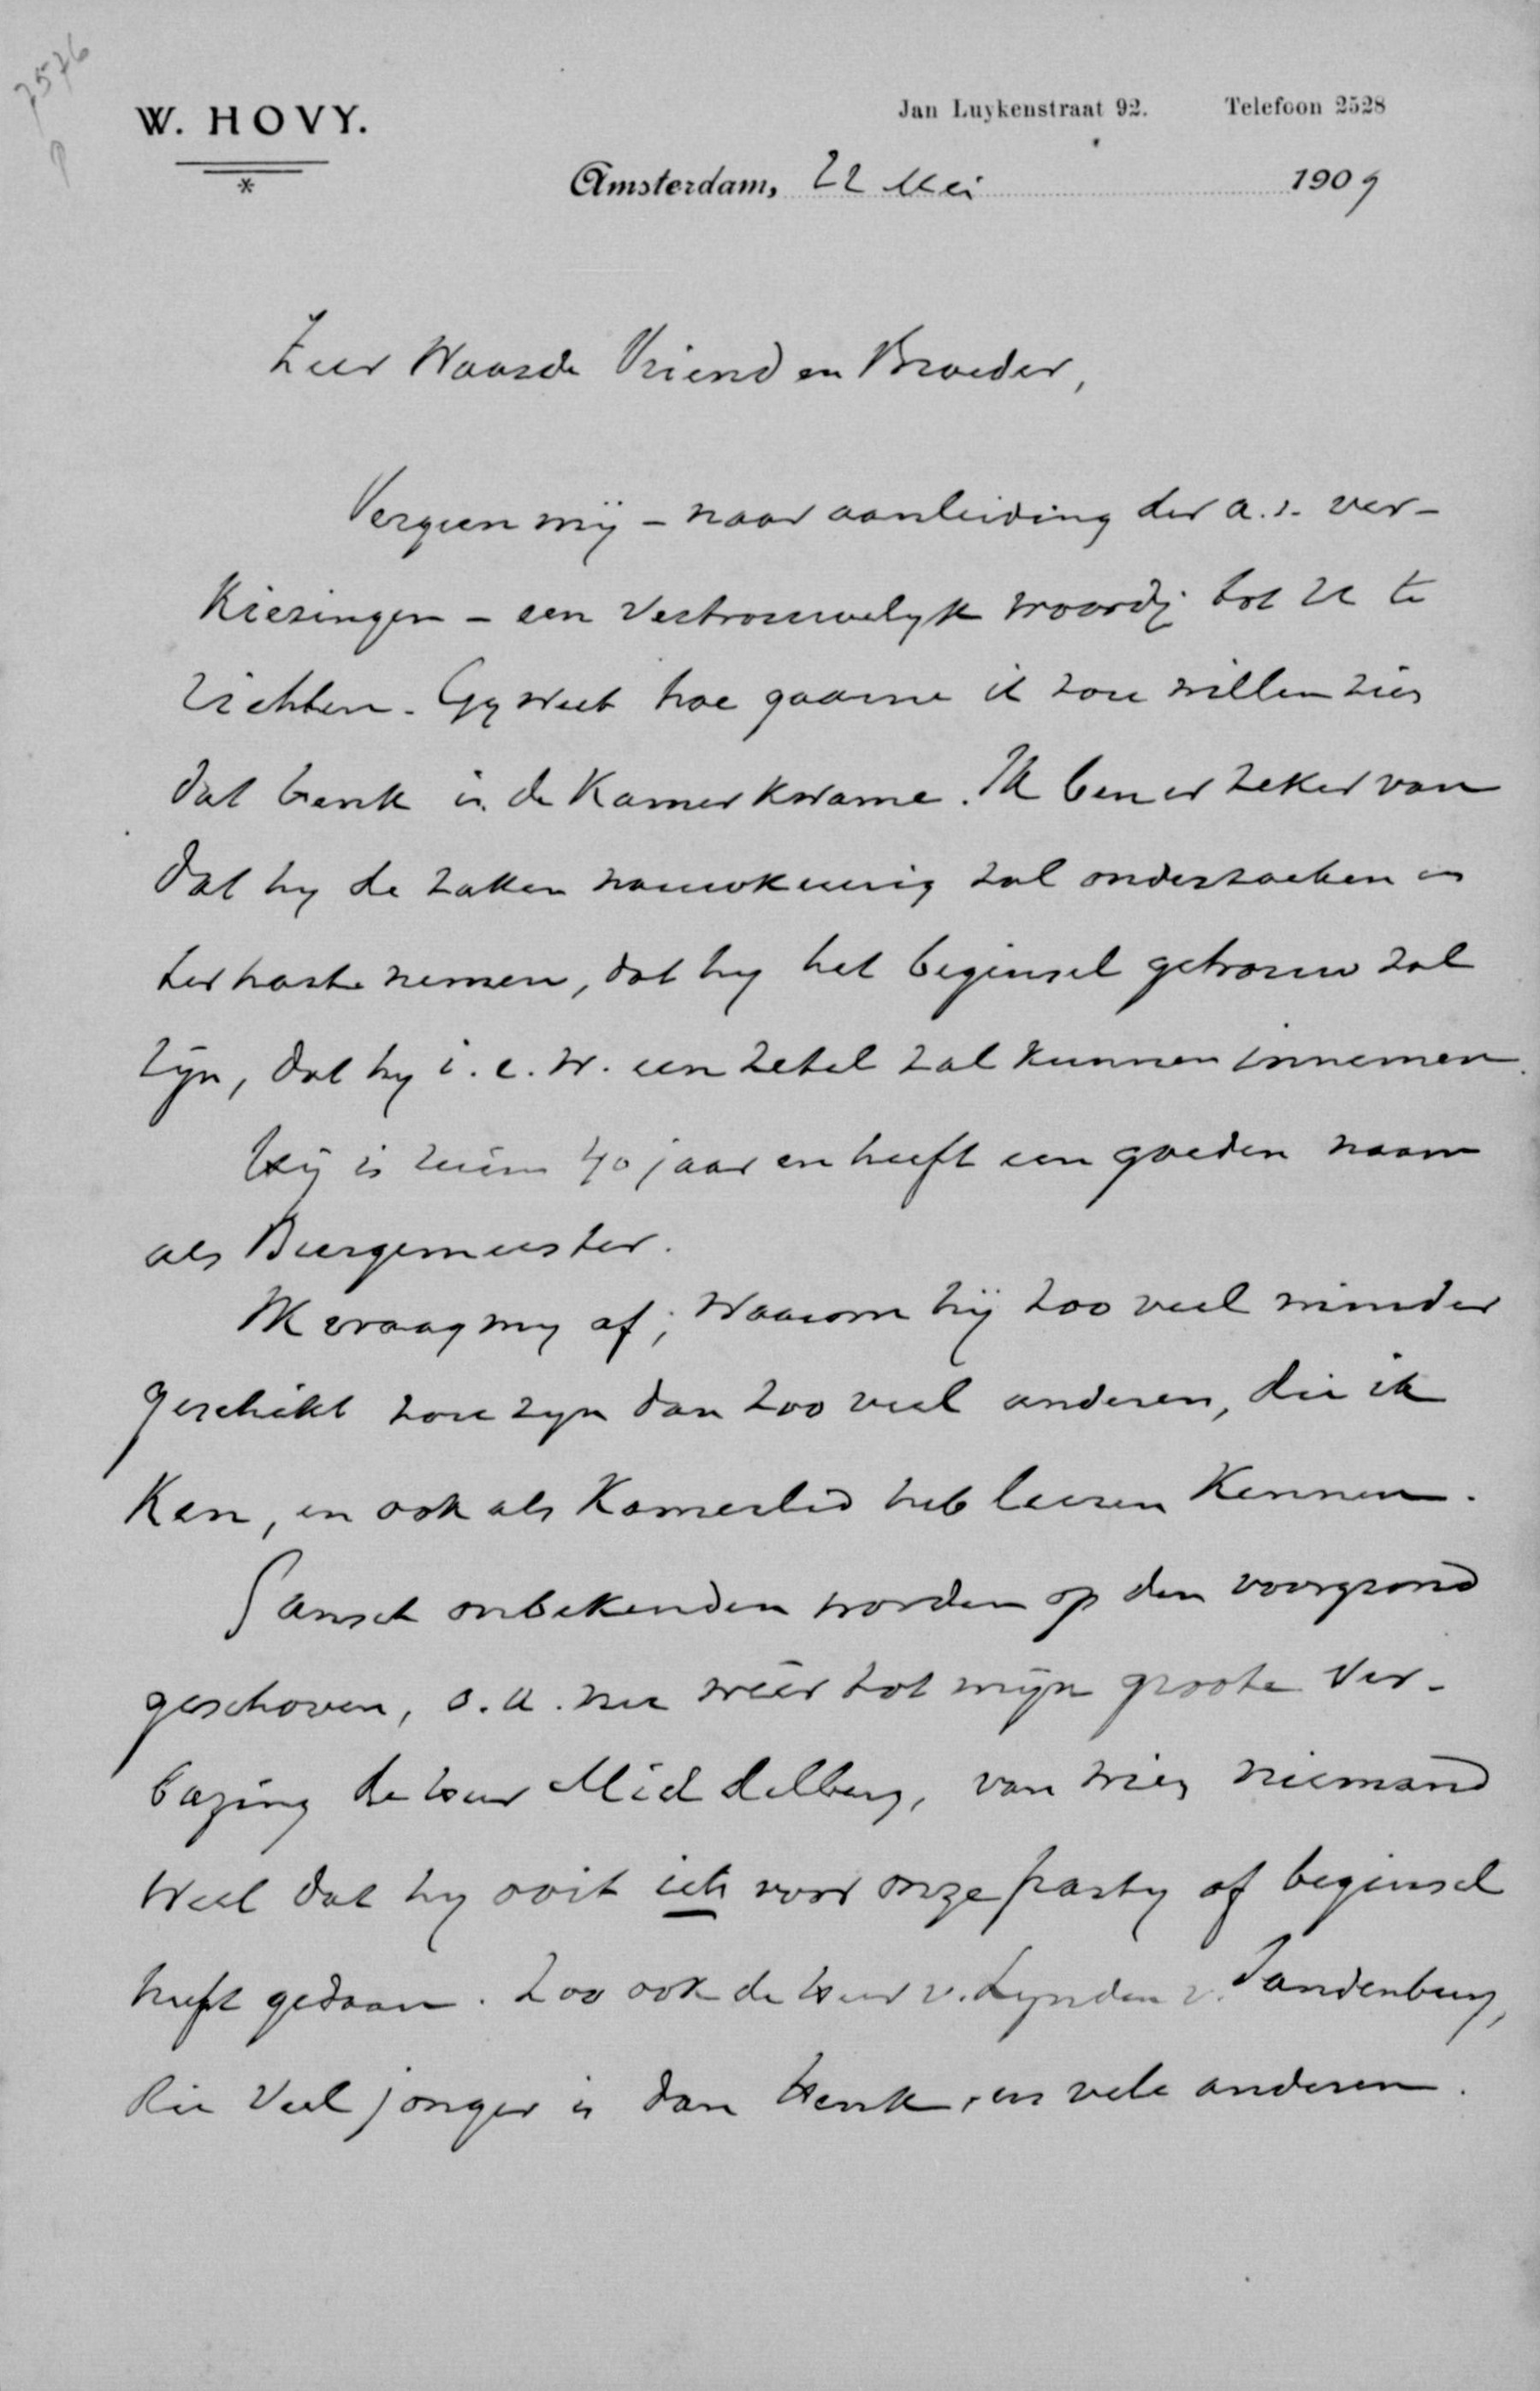 7576
W. HOVY.
Jan Luykenstraat 92. Telefoon 2528
Amsterdam, 22 Mei 1909
Zeer Waarde Vriend en Broeder,
Vergun mij – naar aanleiding der a.s. ver-
kiezingen – een vertrouwelyk woordj tot U te
richten. Gy weet hoe gaarne ik zou willen zien
dat Henk in de Kamer kwame. Ik ben er zeker van
dat hy de zaken nauwkeurig zal onderzoeken en
ter harte nemen, dat hy het beginsel getrouw zal
zijn, dat hy i.e.w. een zetel zal kunnen innemen.
Hij is ruim 40 jaar en heeft een goeden naam
als Burgemeester.
Ik vraag my af; waarom hij zoo veel minder
geschikt zou zyn dan zoo veel anderen, die ik
ken, en ook als Kamerlid heb leeren kennen.
Gansch onbekenden worden op den voorgrond
geschoven, o.a. nu wéér tot mijn groote ver-
bazing de heer Middelberg, van wien niemand
weet dat hy ooit iets voor onze party of beginsel
heeft gedaan. Zoo ook de heer v. Lynden v. Sandenburg,
die veel jonger is dan Henk, en vele anderen.